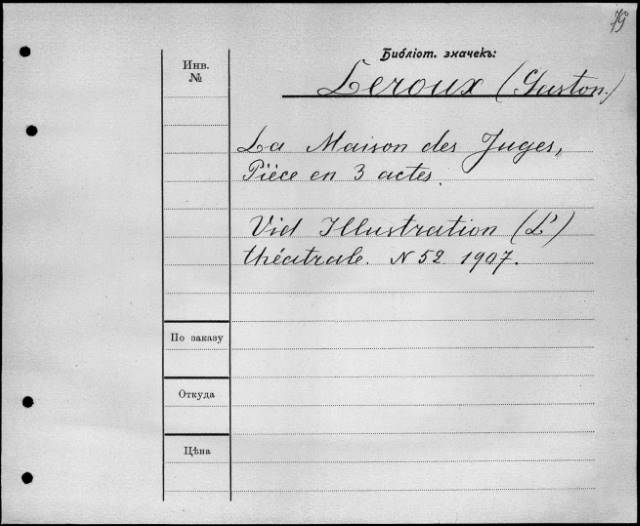 Библіот. значекъ:
Инв.
№
Leroux (Guston.)
La Maison des Juges,
Pièce en 3 actes.
Vid Illustration (L')
théatrale. N 52 1907.
По заказу
Откуда
Цѣна